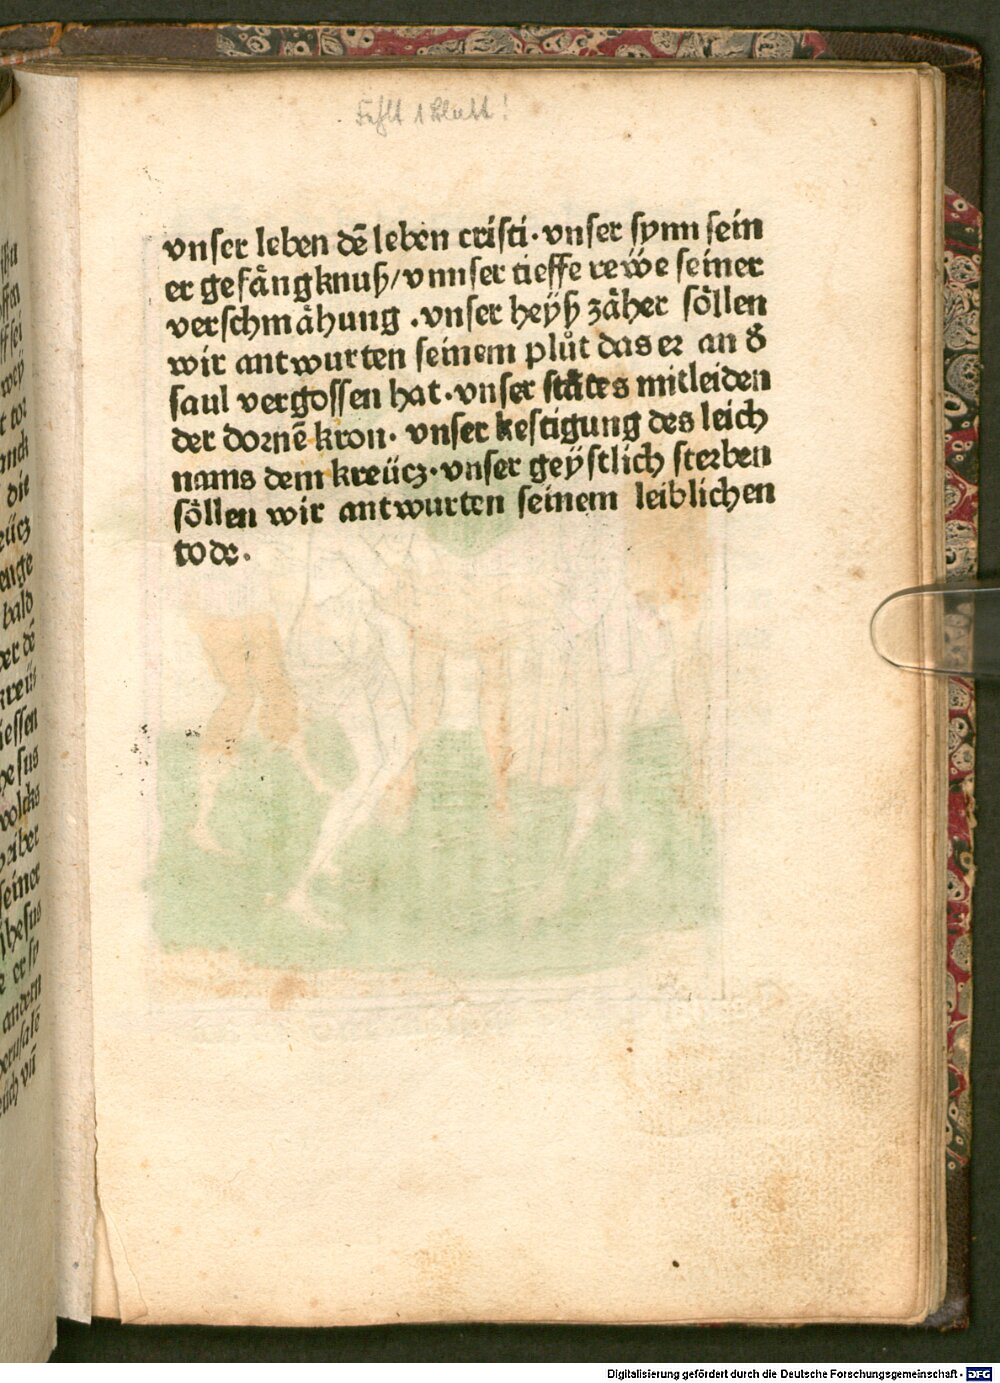 Fehlt 1 Blatt!
vnser leben dē leben cristi·vnser synn sein
er gefångknuß/vnnser tieffe rewe seiner
verschmåhung .vnser heÿß zåher söllen
wir antwurten seinem plůt das er an d̕
saul vergossen hat·vnser ståtes mitleiden
der dornē kron· vnser kestigung des leich
nams dem kreücz·vnser geÿstlich sterben
söllen wir antwurten seinem leiblichen
tode.
die
bald
seiner
andern
Digitalisierung gefördert durch die Deutsche Forschungsgemeinschaft - DFG